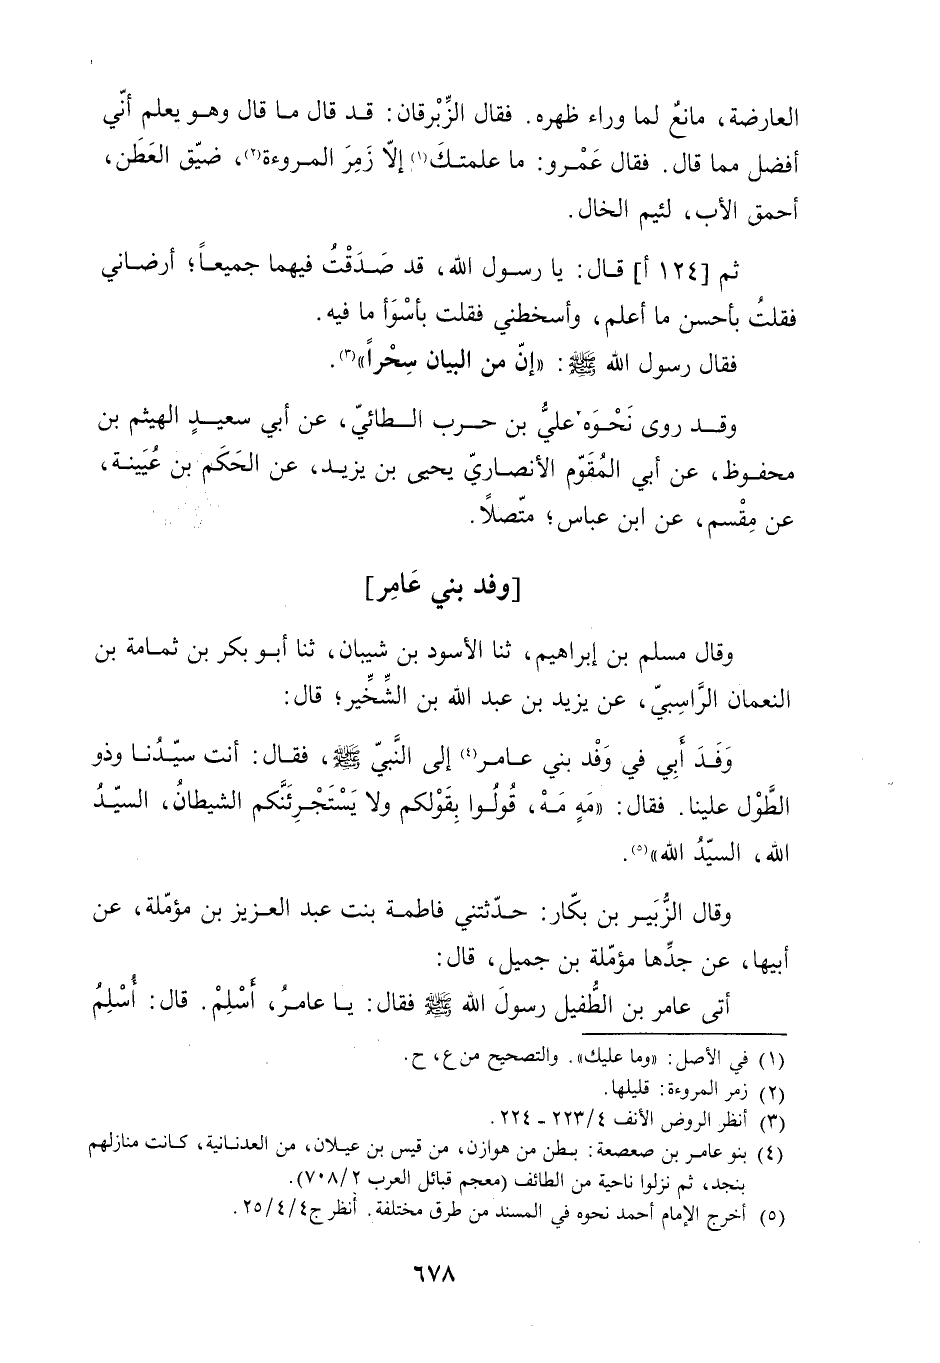 العارضة، مانعٌ لما وراء ظهره. فقال الزِّبْرقان: قـد قال ما قال وهـو يعلم أنّي
أفضل مما قال. فقال عَمْرو: ما علمتكَ(١) إلاّ زَمِرَ المروءة(٢)، ضيّق العَطَن،
أحمق الأب، لئيم الخال.
ثم [١٢٤ أ] قال: يا رسول الله، قد صَدَقْتُ فيهما جميعاً؛ أرضاني
فقلتُ بأحسن ما أعلم، وأسخطني فقلت بأسْوَأ ما فيه.
فقال رسول الله ﷺ: «إنّ من البيان سِحْراً»(٣).
وقد روى نَحْوَه عليُّ بن حرب الطائيّ، عن أبي سعيدٍ الهيثم بن
محفوظ، عن أبي المُقَوّم الأنصاريّ يحيى بن يزيد، عن الحَكَم بن عُيَينة،
عن مِقْسم، عن ابن عباس؛ متّصلاً.
[وفد بني عَامِر]
وقال مسلم بن إبراهيم، ثنا الأسود بن شيبان، ثنا أبو بكر بن ثمامة بن
النعمان الرَّاسِبيّ، عن يزيد بن عبد الله بن الشِّخِّير؛ قال:
وَفَدَ أَبِي في وَفْد بني عامر(٤) إلى النَّبيّ ﷺ، فقال: أنت سيّدُنا وذو
الطَّوْل علينا. فقال: «مَهٍ مَهْ، قُولُوا بِقَوْلكم ولا يَسْتَجْرِئَنَّكم الشيطانُ، السيّدُ
الله، السيّدُ الله»(٥).
وقال الزُّبَيـر بن بكّار: حدّثتني فاطمة بنت عبد العزيز بن مؤمّلة، عن
أبيها، عن جدِّها مؤمّلة بن جميل، قال:
أتى عامر بن الطُّفيل رسولَ الله ﷺ فقال: يا عامرُ، أَسْلِمْ. قال: أُسْلِمُ
(١) في الأصل: «وما عليك». والتصحيح من ع، ح.
(٢) زمر المروءة: قليلها.
(٣) أنظر الروض الأنف ٢٢٣/٤ ـ ٢٢٤.
(٤) بنو عامر بن صعصعة: بطن من هوازن، من قيس بن عيلان، من العدنانية، كانت منازلهم
بنجد، ثم نزلوا ناحية من الطائف (معجم قبائل العرب ٧٠٨/٢).
(٥) أخرج الإمام أحمد نحوه في المسند من طرق مختلفة. أنظر ج٢٥/٤/٤.
٦٧٨